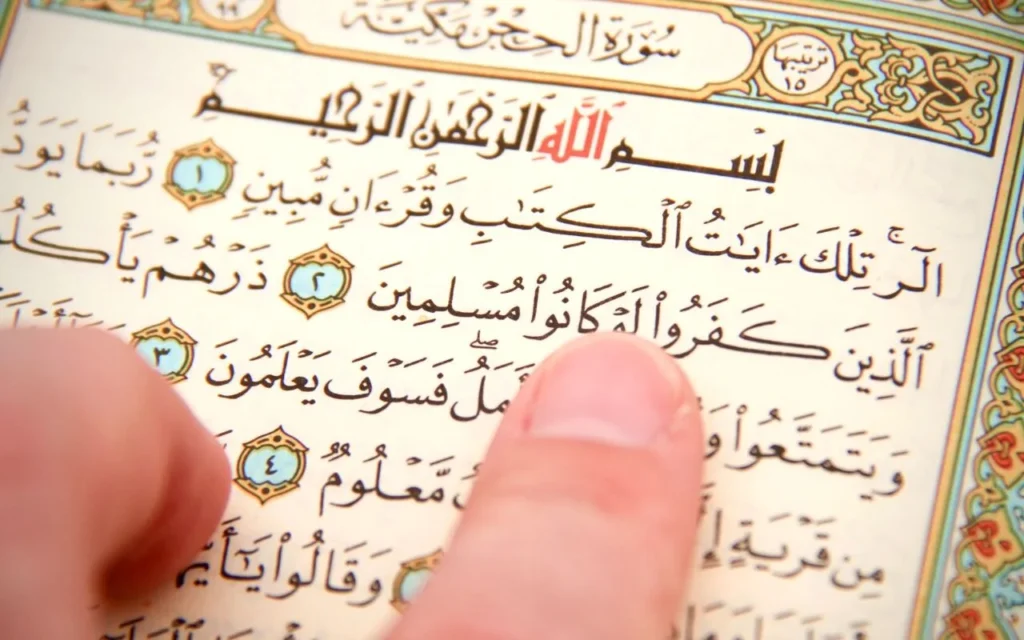 سُورَةُ الْحِجْرِ مَكِّيَّة
ترتيبها ١٥
بِسْمِ اللَّهِ الرَّحْمَٰنِ الرَّحِيمِ
الٓر ۚ تِلْكَ ءَايَٰتُ ٱلْكِتَٰبِ وَقُرْءَانٍ مُّبِينٍ ١ رُّبَمَا يَوَدُّ
ٱلَّذِينَ كَفَرُوا۟ لَوْ كَانُوا۟ مُسْلِمِينَ ٢ ذَرْهُمْ
وَيَتَمَتَّعُوا۟ فَسَوْفَ يَعْلَمُونَ ٣
مِن قَرْيَةٍ مَّعْلُومٌ ٤
وَقَالُوا۟